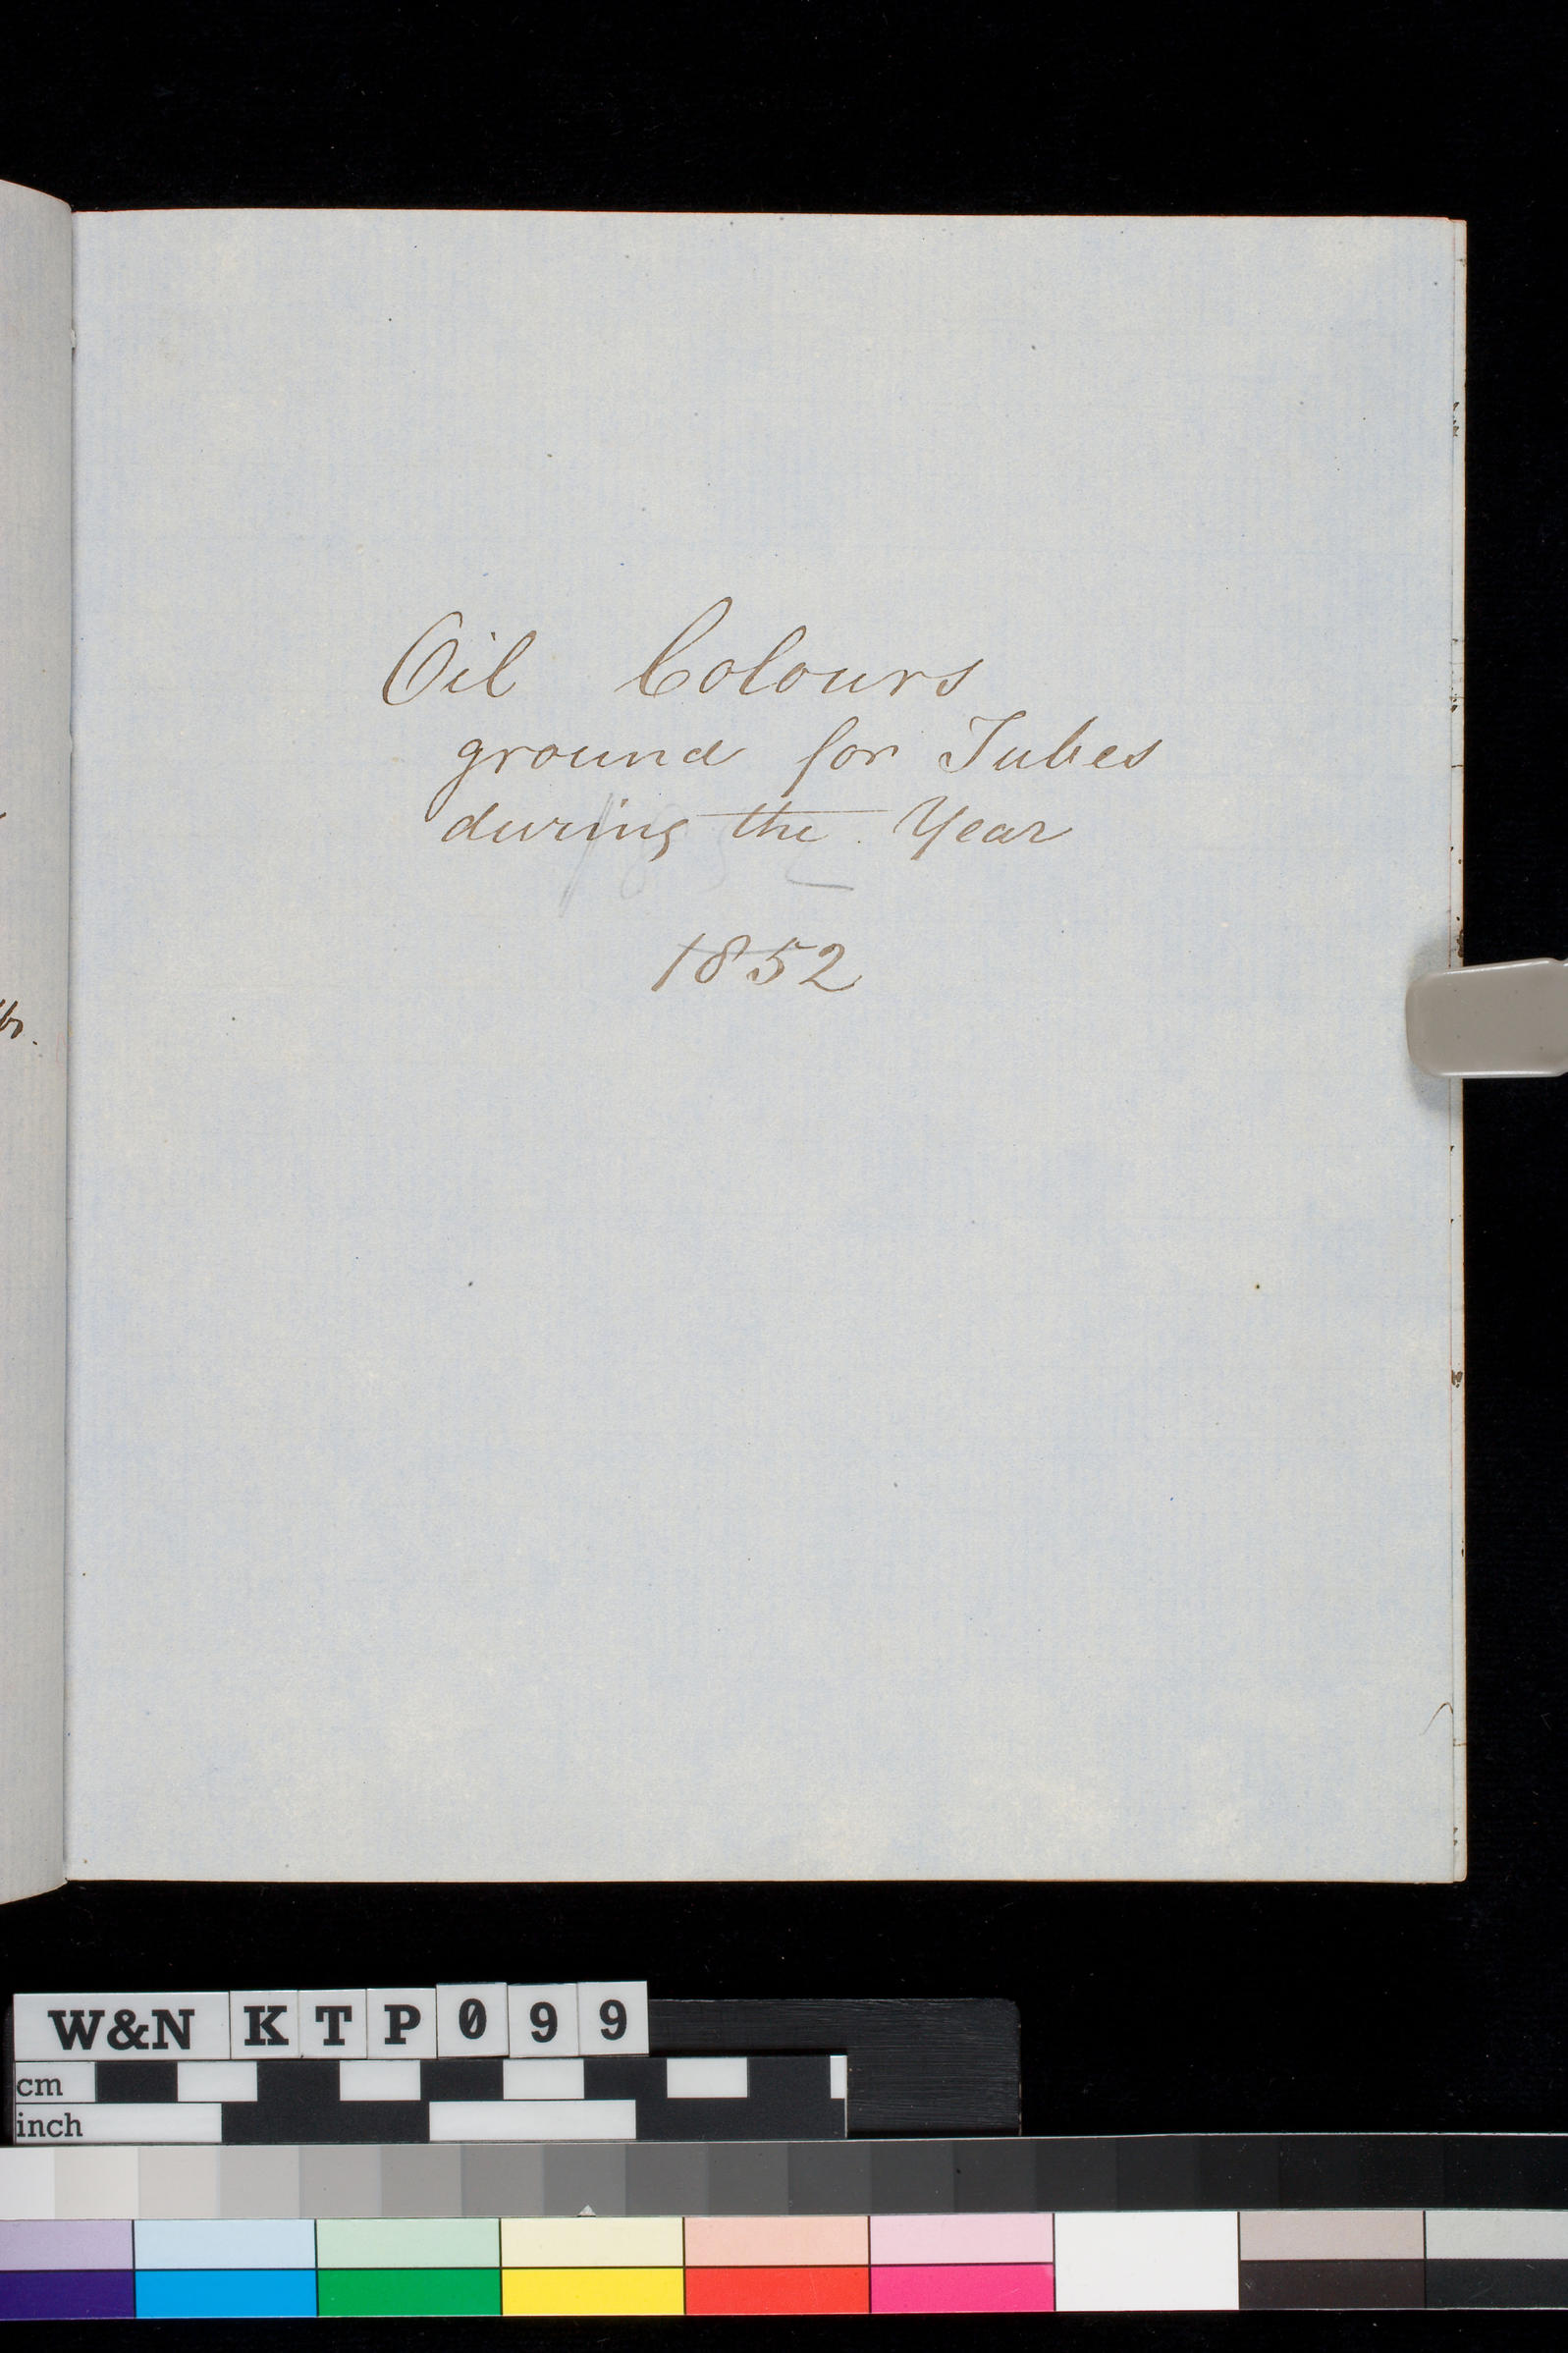 Oil Colours
ground for Tubes
during the Year
1852
1852
W&N KTP099
cm
inch